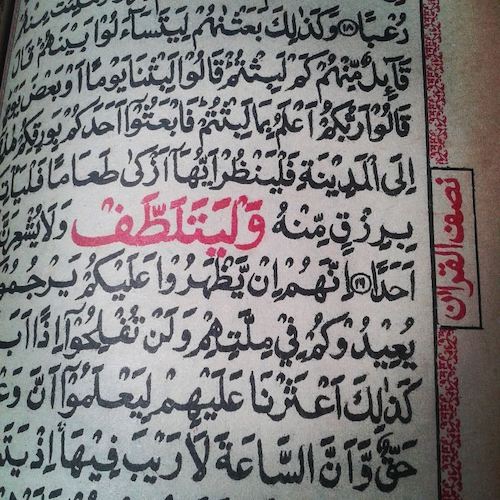 رُعْبًا ۝١٨ وَكَذٰلِكَ بَعَثْنٰهُمْ لِيَتَسَآءَلُوْا بَيْنَهُمْ قَالَ
قَآئِلٌ مِّنْهُمْ كَمْ لَبِثْتُمْ قَالُوْا لَبِثْنَا يَوْمًا اَوْ بَعْضَ
قَالُوْا رَبُّكُمْ اَعْلَمُ بِمَا لَبِثْتُمْ فَابْعَثُوْٓا اَحَدَكُمْ بِوَرِقِكُمْ
اِلَى الْمَدِيْنَةِ فَلْيَنْظُرْ اَيُّهَآ اَزْكٰى طَعَامًا
بِرِزْقٍ مِّنْهُ وَلْيَتَلَطَّفْ وَلَا
اَحَدًا ۝١٩ اِنَّهُمْ اِنْ يَّظْهَرُوْا عَلَيْكُمْ
يُعِيْدُوْكُمْ فِيْ مِلَّتِهِمْ وَلَنْ تُفْلِحُوْٓا اِذًا
كَذٰلِكَ اَعْثَرْنَا عَلَيْهِمْ لِيَعْلَمُوْٓا اَنَّ
حَقٌّ وَّاَنَّ السَّاعَةَ لَا رَيْبَ فِيْهَا اِذْ
نصف القران